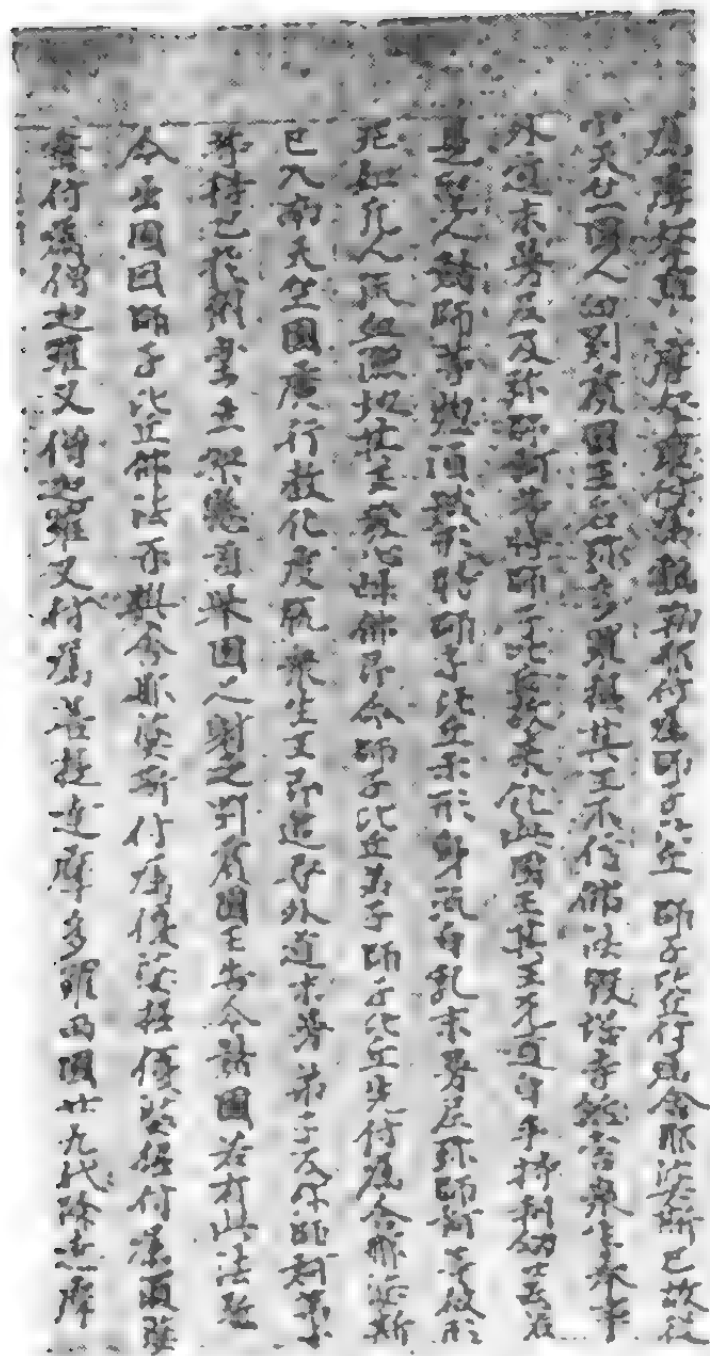 囑摩拏羅摩拏羅付囑鶴勒那付囑師子比丘師子比丘付囑舍那婆斯已故從
中天竺國人向罽賓國王名弥多羅掘其王不信佛法毀塔寺煞害衆生奉事
外道末曼尼及弥師訶等時師子比丘故來化此國王其王无道自手持利劍云若
是聖人諸師等惣須誡形時師子比丘示形身流白乳末曼尼弥師訶等被形
死如凡人流血灑地其王發心歸佛即令師子比丘弟子師子比丘先付囑舍那婆斯
已入南天竺國廣行教化度脫衆生王即追尋外道末曼弟子及弥師訶弟子
等得已於朝堂立架懸首舉國人射之罽賓國王告令諸國若有此法駈
令出國因師子比丘佛法再興舍那婆斯付囑優婆掘優婆掘付須婆蜜須
婆蜜付囑僧迦羅叉僧迦羅叉付囑菩提達摩多羅西國廿九代除達摩